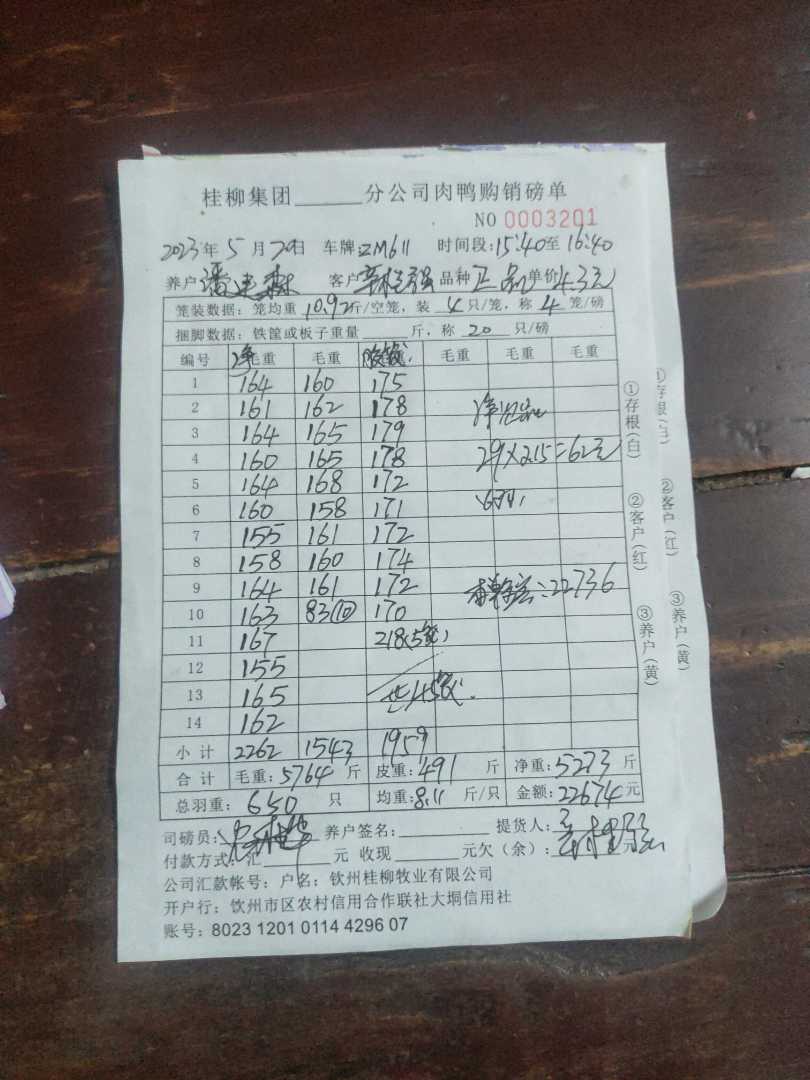 桂柳集团______分公司肉鸭购销磅单
NO 0003201
2023年 5 月 29日 车牌: ZM611 时间段: 15:40至 16:40
养户 潘建森 客户 品种 正品 单价 4.3元
笼装数据: 笼均重 10.92斤/空笼, 装 4 只/笼, 称 4 笼/磅
捆脚数据: 铁筐或板子重量______斤, 称 20 只/磅
编号 净毛重 毛重 毛重 毛重 毛重
1 164 160 175
2 161 162 178
3 164 165 179
4 160 165 178 29×2.15=62元
5 164 168 172
6 160 158 171
7 155 161 172
8 158 160 174
9 164 161 172 :22736
10 163 83(10) 170
11 167 218(5笼)
12 155
13 165 共45笼.
14 162
小计 2262 1543 1959
合计 毛重: 5764 斤 皮重: 491 斤 净重: 5273 斤
总羽重: 650 只 均重: 8.11 斤/只 金额: 22674元
司磅员: 养户签名: 提货人:
付款方式: 汇______元 收现______元欠(余): 元
公司汇款帐号: 户名: 钦州桂柳牧业有限公司
开户行: 钦州市区农村信用合作联社大垌信用社
账号: 8023 1201 0114 4296 07
①存根(白)
②客户(红)
③养户(黄)
①存根(白)
②客户(红)
③养户(黄)